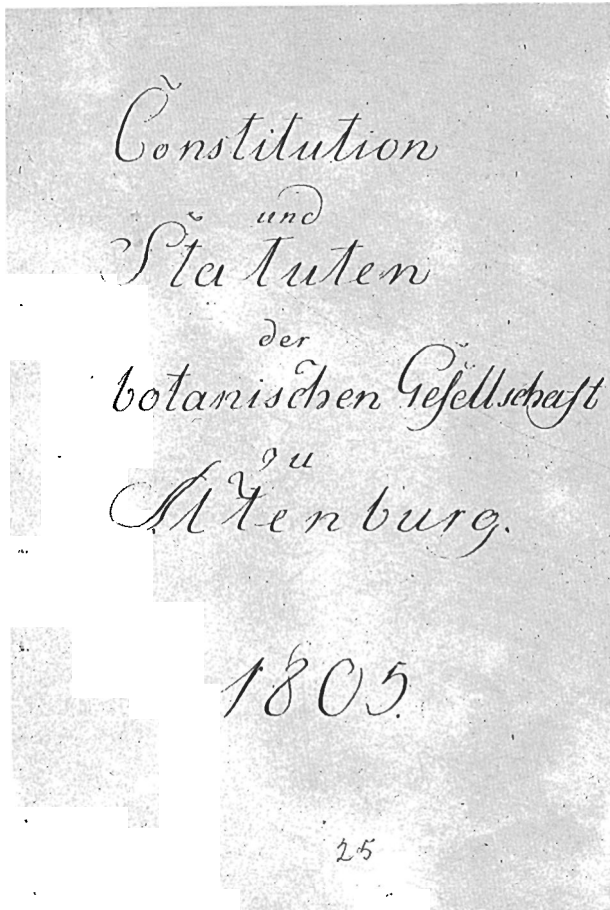 Constitution
und
Statuten
der
botanischen Gesellschaft
zu
Altenburg.
1805.
25